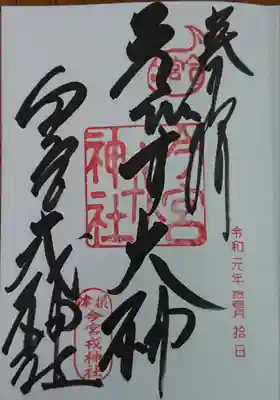 奉拝
大神
今宮戎神社
令和元年拾壹月拾日
今宮戎神社
摂津
今宮戎神社